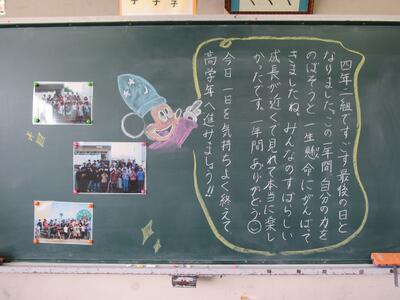 四年一組ですごす最後の日と
なりました。この一年間、自分の力を
のばそうと一生懸命にがんばって
きましたね。みんなのすばらしい
成長が近くで見れて本当に楽し
かったです。一年間ありがとう☺
今日一日を気持ちよく終えて、
高学年へ進みましょう!!